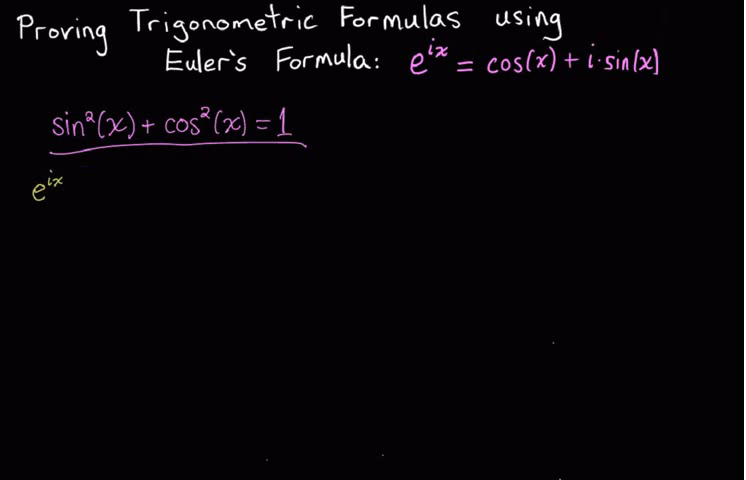 Proving Trigonometric Formulas using
Euler's Formula: e^{ix} = cos(x) + i·sin(x)
sin²(x) + cos²(x) = 1
e^{ix}